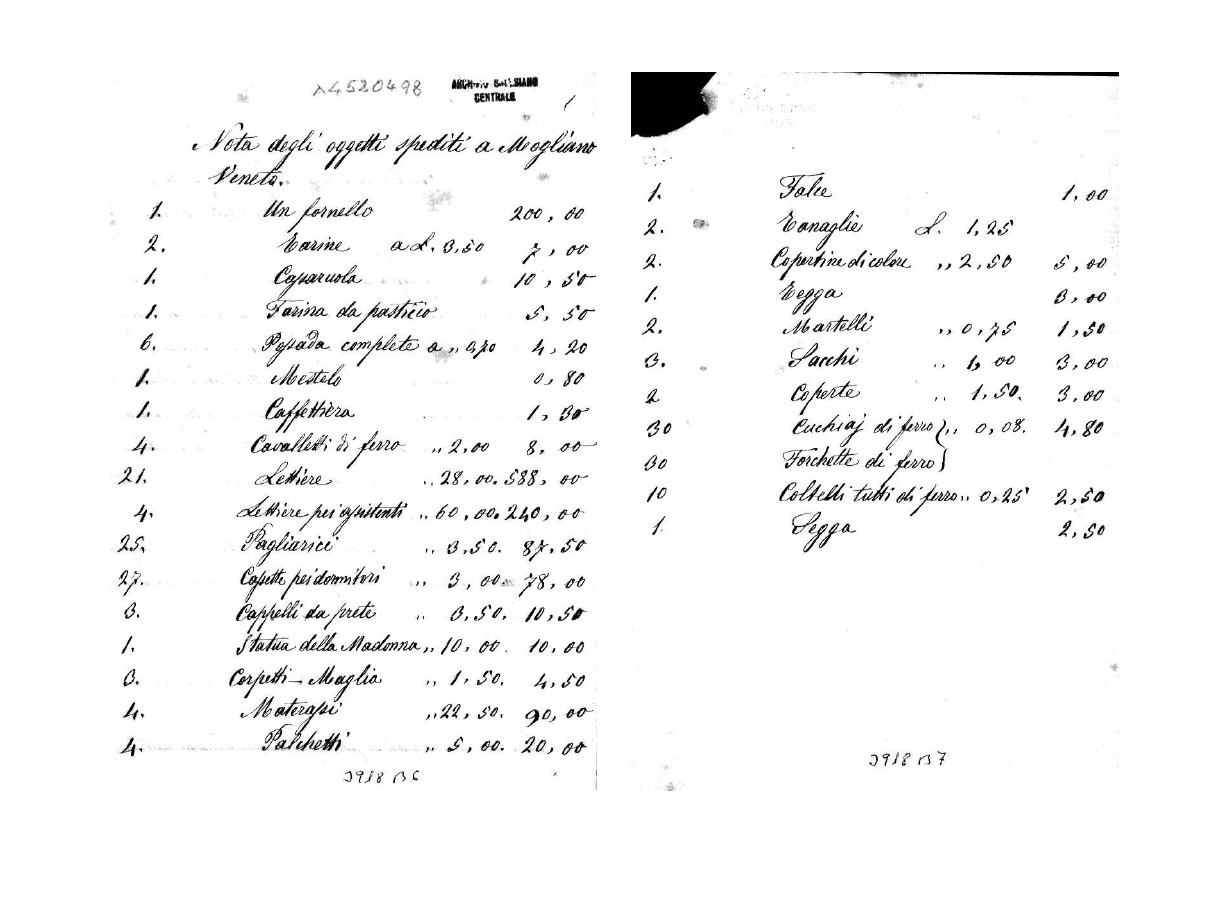 A4520498
ARCHIVIO SALESIANO
CENTRALE
1
Nota degli oggetti spediti a Mogliano
Veneto.
1. Un fornello 200, 00
2. Tarine a L. 3,50 7, 00
1. Casaruola 10, 50
1. Tarina da pasticio 5, 50
6. Posada complete a ,, 0,70 4, 20
1. Mestelo 0, 80
1. Caffettiera 1, 30
4. Cavalletti di ferro ,, 2,00 8, 00
21. Lettiere ,, 28,00. 588, 00
4. Lettiere pei assistenti ,, 60,00. 240, 00
25. Pagliarici ,, 3,50. 87,50
27. Casette pei dormitori ,, 3,00. 78,00
3. Cappelli da prete ,, 3,50. 10,50
1. Statua della Madonna ,, 10,00. 10,00
3. Corpetti - Maglia ,, 1,50. 4,50
4. Materassi ,, 22,50. 90,00
4. Palchetti ,, 5,00. 20,00
3918 B6
1. Falce 1,00
2. Tanaglie L. 1,25
2. Copertine di colore ,, 2,50 5,00
1. Tegga 3,00
2. Martelli ,, 0,75 1,50
3. Sacchi ,, 1,00 3,00
2 Coperte ,, 1,50. 3,00
30 Cuchiaj di ferro } ,, 0,08. 4,80
30 Forchette di ferro }
10 Coltelli tutti di ferro ,, 0,25 2,50
1. Segga 2,50
3918 B7